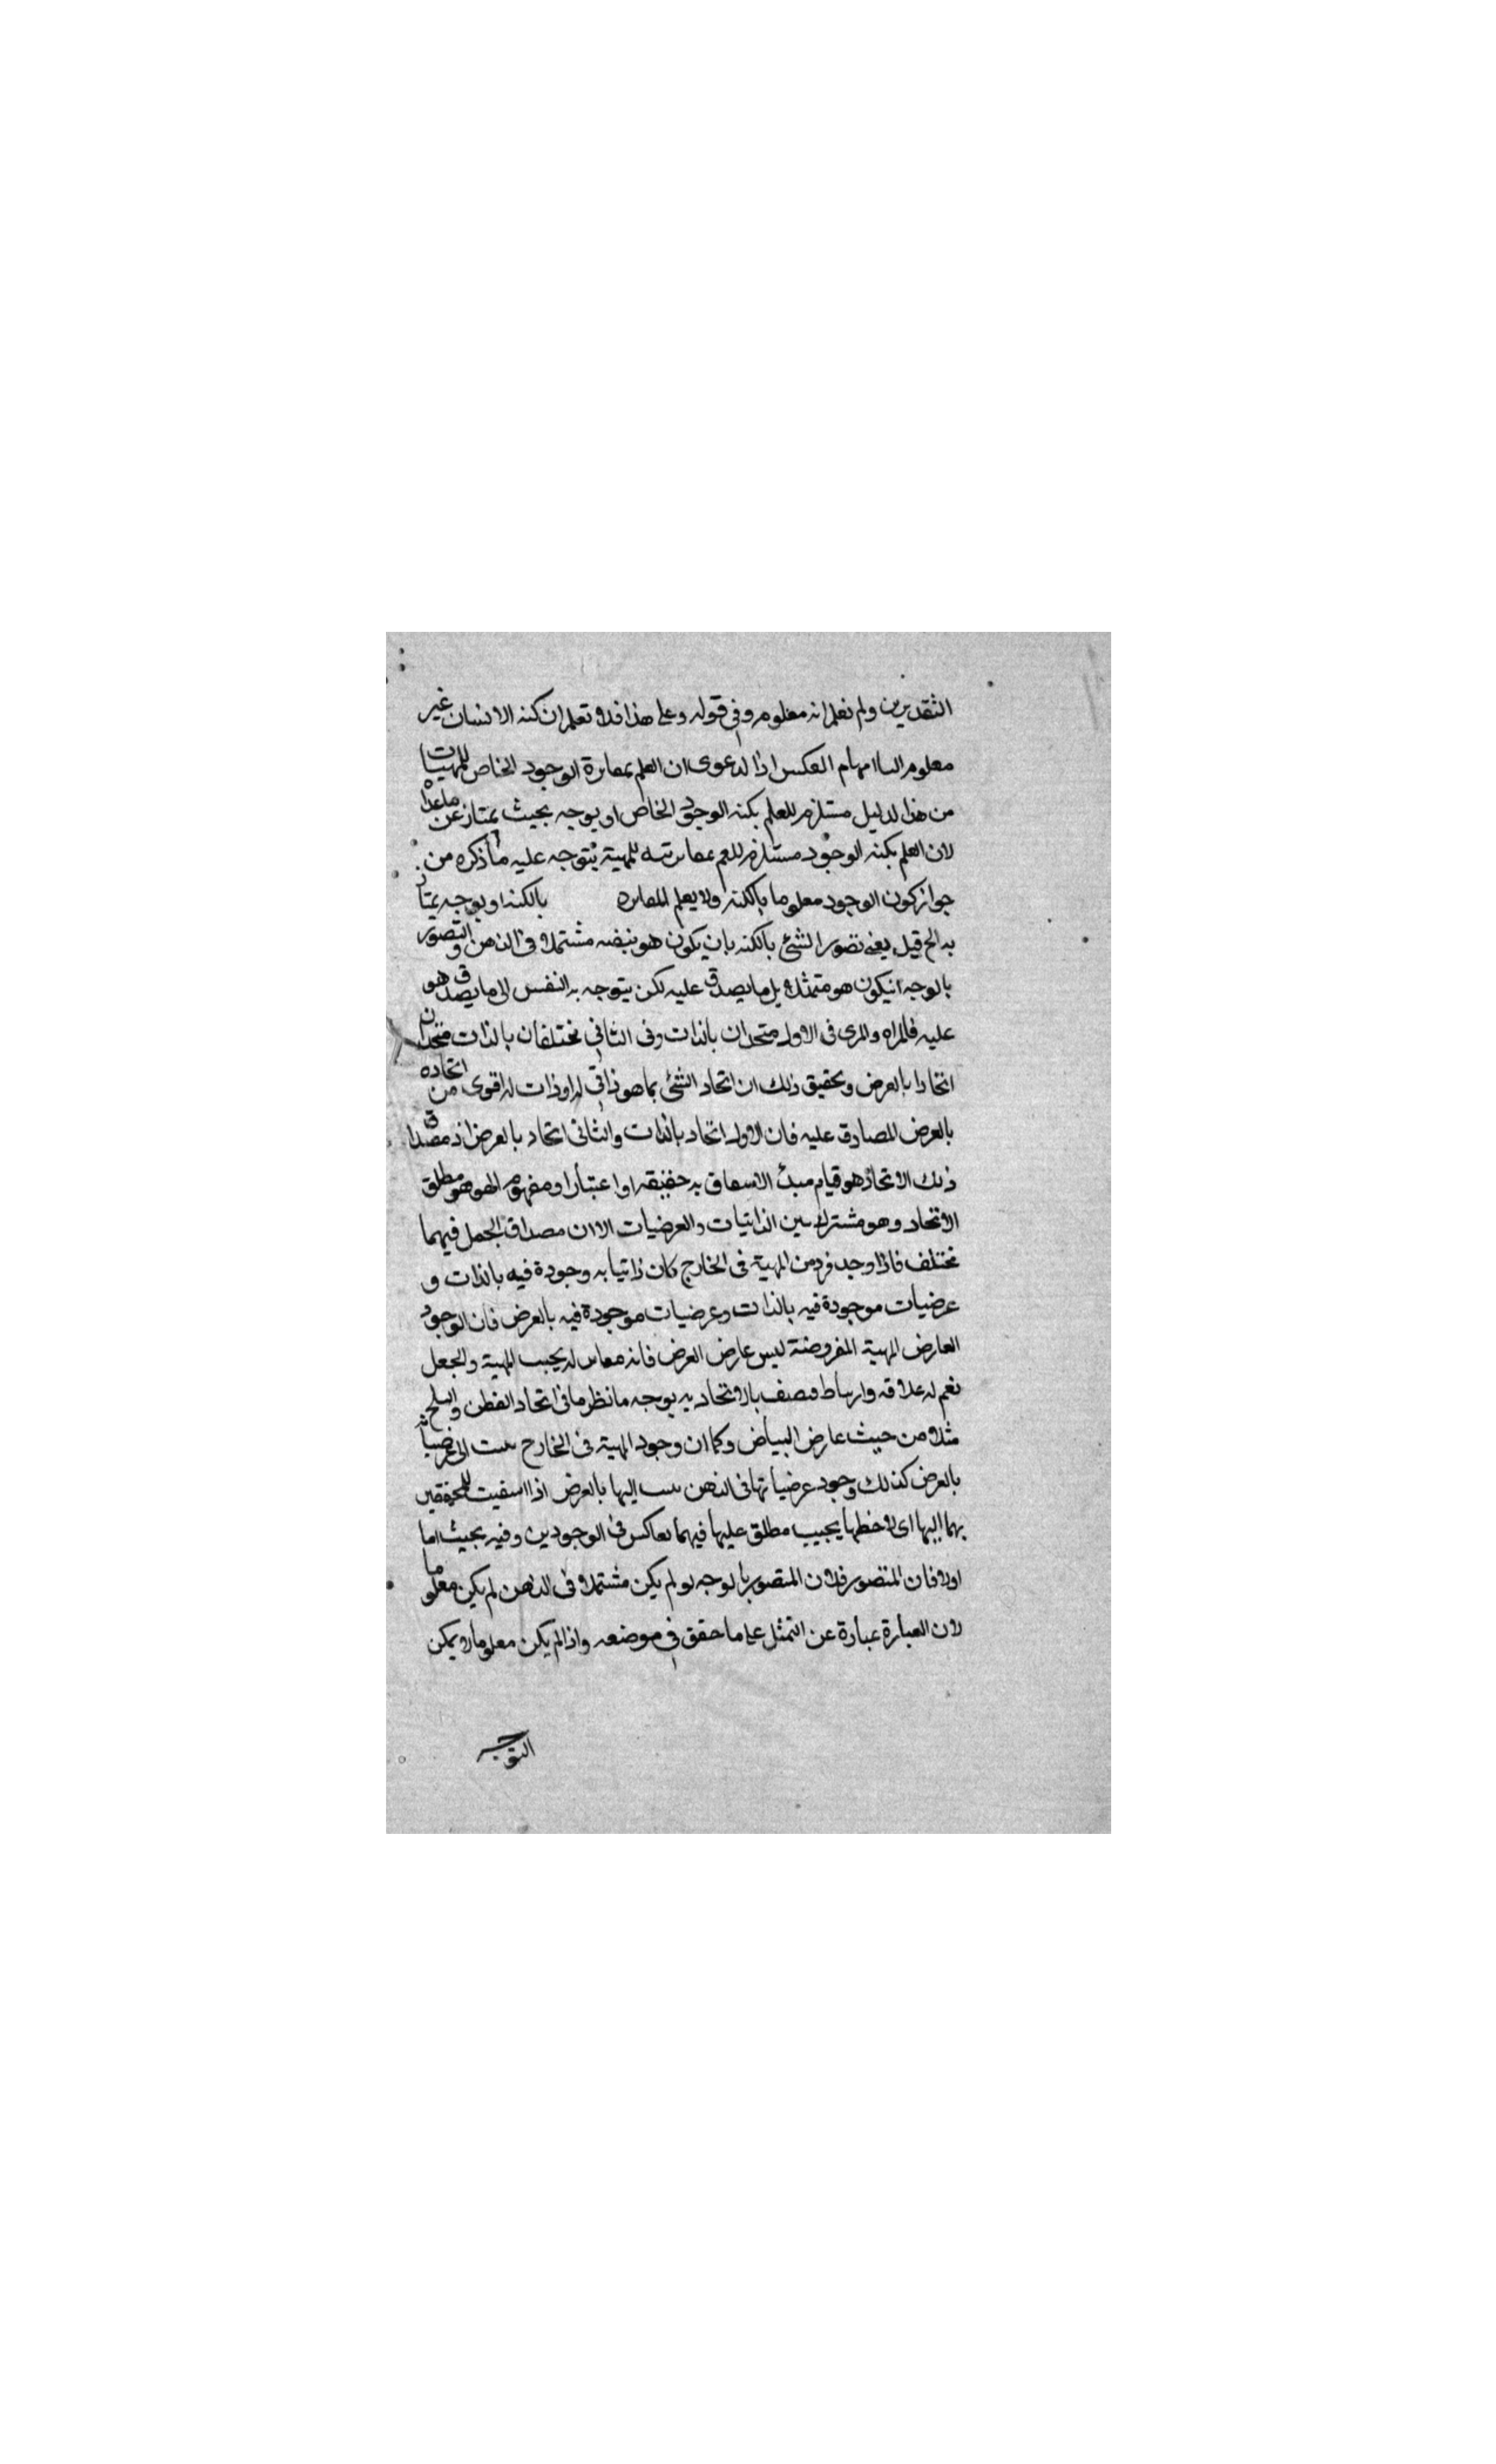 التقديرين ولم نعلم انه معلوم وفي قوله وعلى هذا فلا تعلم ان كنه الانسان غير
معلوم العكس اذا لدعوى ان العلم بمغايرة الوجود الخاص للمهيات
من هذا لدليل مستلزم للعلم بكنه الوجود الخاص او بوجه بحيث يمتاز عن ما عداه
لان العلم بكنه الوجود مستلزم للعم للمهية يتوجه عليه ما ذكره من
جواز كون الوجود معلوما بالكنه ولا يعلم المغايره بالكنه او بوجه يمتاز
به الخ قيل يعني تصور الشئ بالكنه بان يكون هو بنفسه مشتملا في الذهن والتصور
بالوجه انيكون هو متمثلا بل ما يصدق عليه لكن يتوجه به النفس الى ما يصدق هو
عليه فالمراه والمرى في الاول متحدان بالذات وفى الثاني مختلفان بالذات متحدان
اتحادا بالعرض وتحقيق ذلك ان اتحاد الشئ بما هو ذاتي له او ذات له اقوى من اتحاده
بالعرض الصادق عليه فان الاول اتحاد بالذات والثانى اتحاد بالعرض اذ مصداق
ذلك الاتحاد هو قيام مبدأ به حقيقه او اعتبارا ومفهوم الهو هو مطلق
الاتحاد وهو مشترك بين الذاتيات والعرضيات الا ان مصداق الحمل فيهما
مختلف فاذا وجد فرد من المهية فى الخارج كان ذاتيا به وجودة فيه بالذات و
عرضيات موجودة فيه بالذات وعرضيات موجودة فيه بالعرض فان الوجود
العارض المهية المفروضة ليس عارض العرض فانه له يجبب المهية والجعل
نعم له علاقه وارتباط بالاتحاد به بوجه ما نظر ما فى اتحاد القطن والثلج
مثلا من حيث عارض البياض وكما ان وجود المهية فى الخارج الى عرضياته
بالعرض كذلك وجود عرضياتها فى الذهن اليها بالعرض اذا
بهما اليها اى لاحظها يجبب مطلق عليها فيهما تعاكس فى الوجودين وفيه بحيث اما
اولا فان المتصور فلان المتصور بالوجه لو لم يكن مشتملا فى الذهن لم يكن معلوما
لان العبارة عبارة عن التمثل على ما حقق في موضعه واذا لم يكن معلوما لا يمكن
التوجه